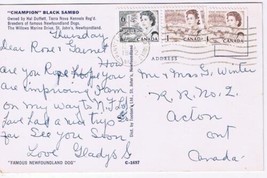 "CHAMPION" BLACK SAMBO
Owned by Hal Duffett, Terra Nova Kennels Reg'd.
Breeders of famous Newfoundland Dogs
The Willows Marine Drive, St. John's, Newfoundland.
Thursday
Dear Rose & Garnet
How
are you Rose hope you
are improving I am
on my way to
have had a nice trip so
far See you soon
Love Gladys G
"FAMOUS NEWFOUNDLAND DOG"
CANADA
CANADA
ADDRESS
Mr & Mrs G. Winter
R.R. No 2,
Acton
ont
Canada